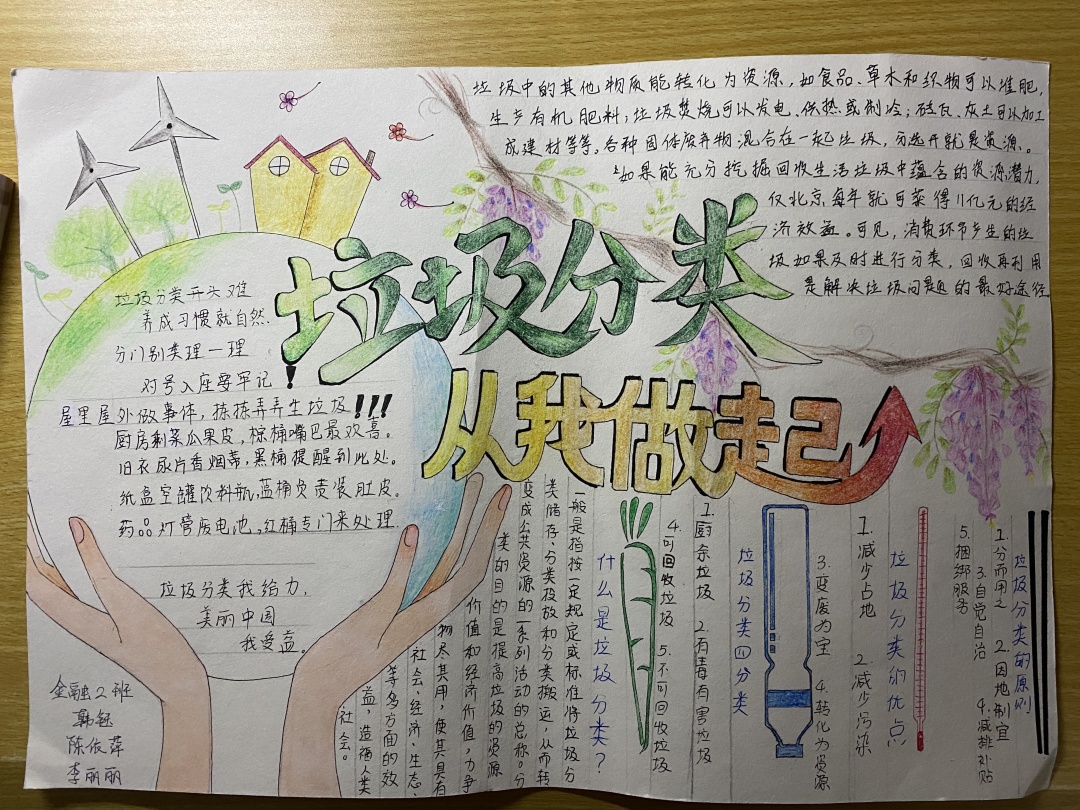 垃圾中的其他物质能转化为资源,如食品、草木和织物可以堆肥,
生产有机肥料;垃圾焚烧可以发电、供热或制冷;砖瓦、灰土可以加工
成建材等等。各种固体废弃物混合在一起是垃圾,分选开就是资源。
如果能充分挖掘回收生活垃圾中蕴含的资源潜力,
仅北京每年就可获得11亿元的经
济效益。可见,消费环节产生的垃
圾如果及时进行分类,回收再利用
是解决垃圾问题的最好途径
垃圾分类
从我做起
垃圾分类开头难
养成习惯就自然
分门别类理一理
对号入座要牢记!
屋里屋外做事体,拣拣弄弄生垃圾!!!
厨房剩菜瓜果皮,棕桶嘴巴最欢喜。
旧衣尿片香烟蒂,黑桶提醒到此处。
纸盒空罐饮料瓶,蓝桶负责装肚皮。
药品灯管废电池,红桶专门来处理.
垃圾分类我给力,
美丽中国
我受益。
金融2班
韩钰
陈依萍
李丽丽
垃圾分类的原则
1.分而用之 2.因地制宜
3.自觉自治 4.减排补贴
5.捆绑服务
垃圾分类的优点
1.减少占地 2.减少污染
3.变废为宝 4.转化为资源
垃圾分类四分类
1.厨余垃圾 2.有毒有害垃圾
4.可回收垃圾 5.不可回收垃圾
什么是垃圾分类?
一般是指按一定规定或标准将垃圾分
类储存、分类投放和分类搬运,从而转
变成公共资源的一系列活动的总称。分
类的目的是提高垃圾的资源
价值和经济价值,力争
物尽其用,使其具有
社会、经济、生态
等多方面的效
益,造福人类
社会。